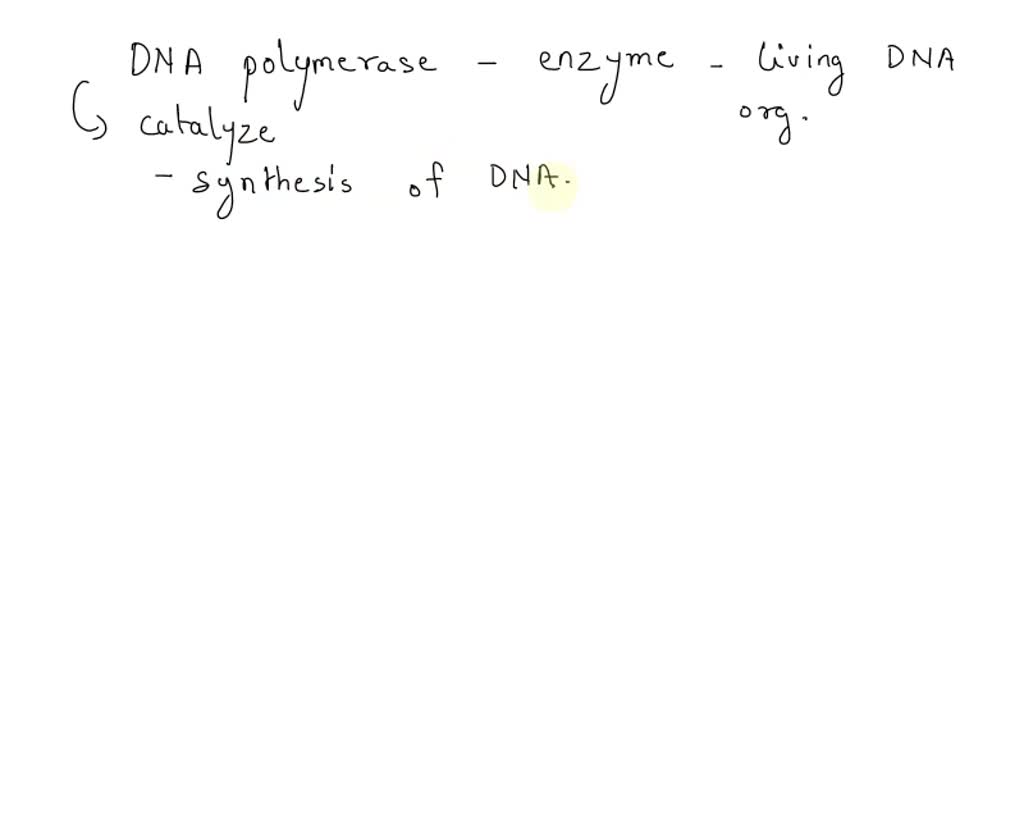 DNA polymerase - enzyme - living DNA
org.
catalyze
- synthesis of DNA.